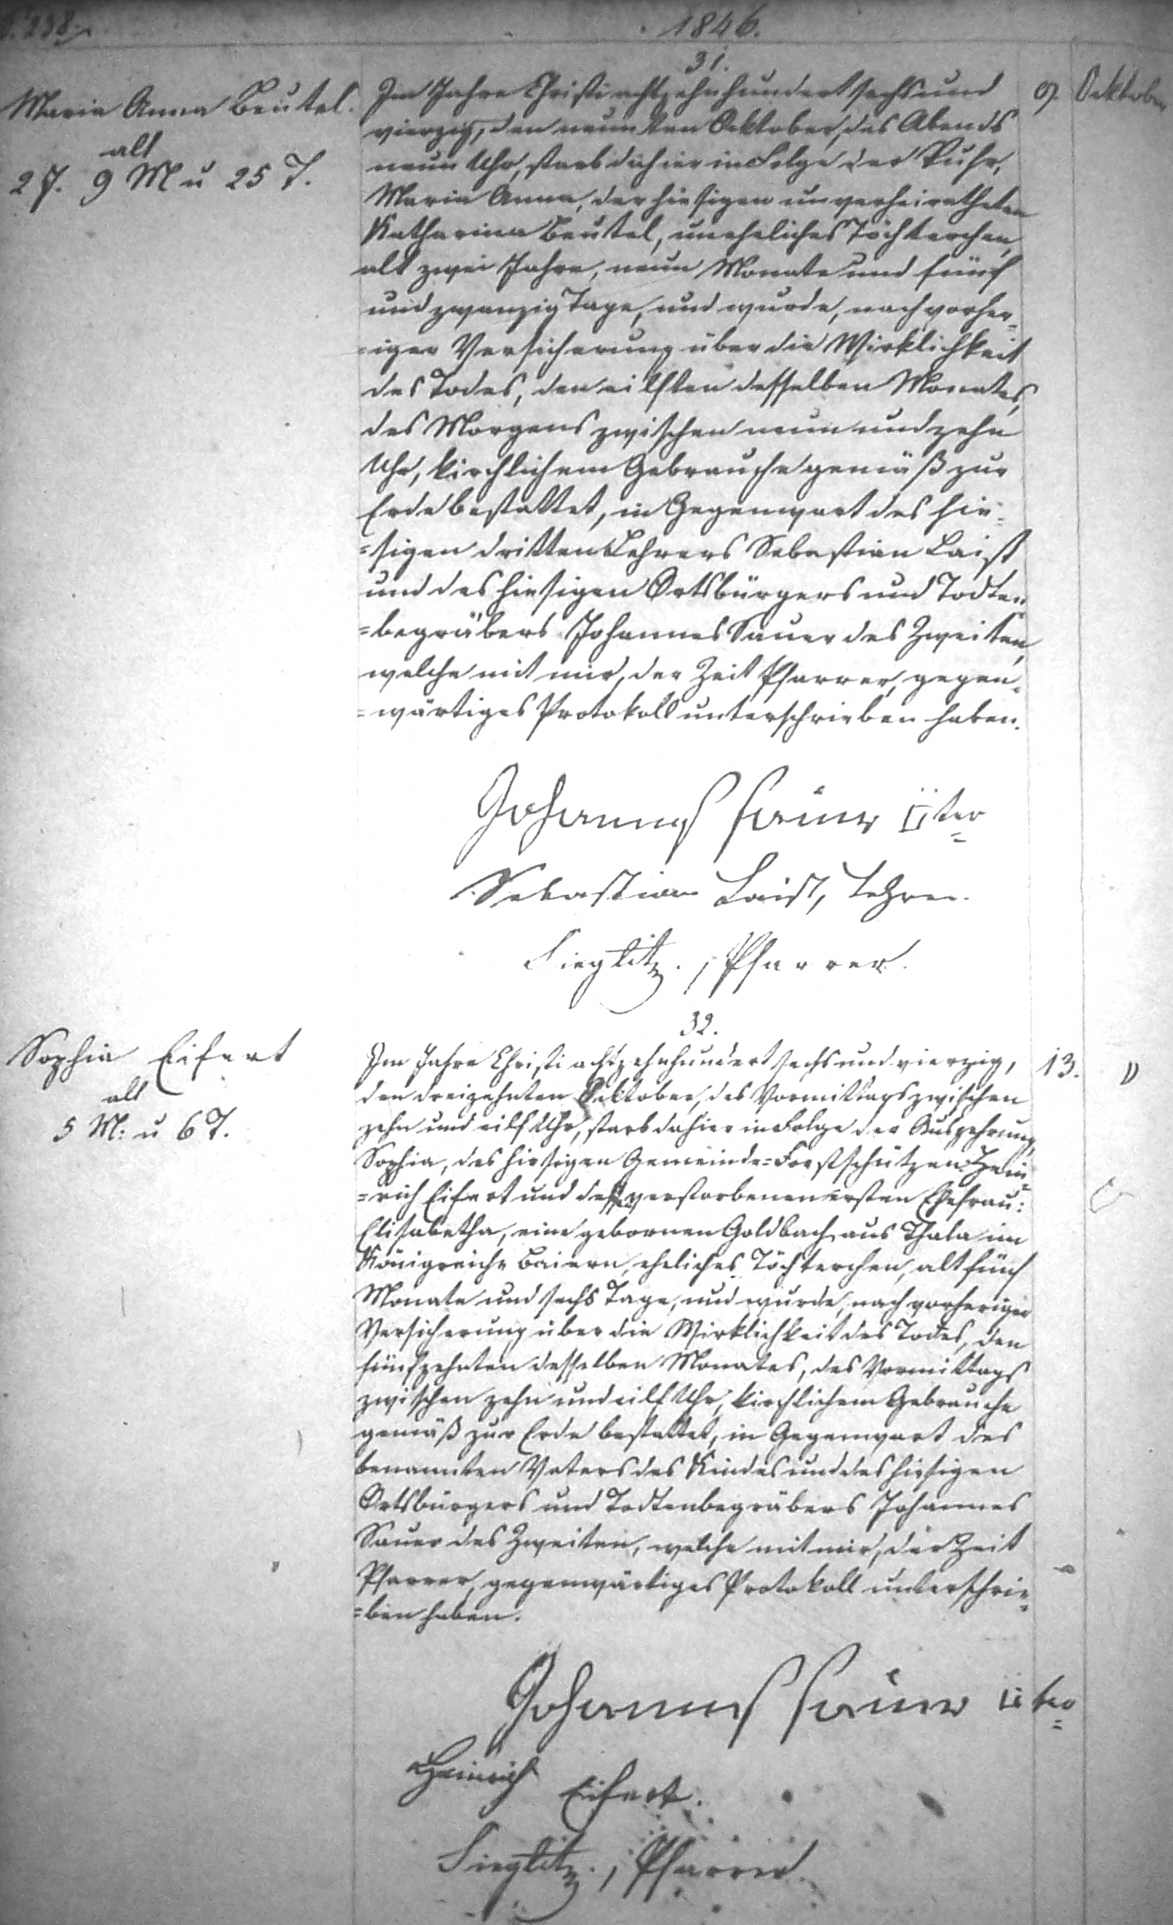 S. 238.
1846.
31.
Maria Anna Beutel.
alt
2 J. 9 M u 25 T.
9. Oktober
Im Jahre Christi achtzehnhundert sechs und
vierzig, den neunten Oktober, des Abends
neun Uhr, starb dahier in Folge der Ruhr,
Maria Anna, der hiesigen unverheiratheten
Katharina Beutel, uneheliches Töchterchen,
alt zwei Jahre, neun Monate und fünf
und zwanzig Tage, und wurde, nach vorher-
=iger Versicherung über die Wirklichkeit
des Todes, den eilften desselben Monates,
des Morgens zwischen neun und zehn
Uhr, kirchlichem Gebrauche gemäß zur
Erde bestattet, in Gegenwart des hie-
=sigen dritten Lehrers Sebastian Laist
und des hiesigen Ortsbürgers und Todten-
=begräbers Johannes Sauer des Zweiten,
welche mit mir, der Zeit Pfarrer, gegen-
=wärtiges Protokoll unterschrieben haben.
Johannes Sauer II ter
Sebastian Laist, Lehrer.
Sieglitz, Pfarrer.
32.
Sophia Eifert
alt
5 M: u 6 T.
13. "
Im Jahre Christi achtzehnhundert sechs und vierzig,
den dreizehnten Oktober, des Vormittags zwischen
zehn und eilf Uhr, starb dahier in Folge der Auszehrung,
Sophia, des hiesigen Gemeinde=Forstschützen Hein-
=rich Eifert und dessen verstorbenen ersten Ehefrau:
Elisabetha, eine gebornen Goldbach aus Thala im
Königreiche Baiern, eheliches Töchterchen, alt fünf
Monate und sechs Tage, und wurde, nach vorheriger
Versicherung über die Wirklichkeit des Todes, den
fünfzehnten desselben Monates, des Vormittags
zwischen zehn und eilf Uhr, kirchlichem Gebrauche
gemäß zur Erde bestattet, in Gegenwart des
benannten Vaters des Kindes und des hiesigen
Ortsbürgers und Todtenbegräbers Johannes
Sauer des Zweiten, welche mit mir, der Zeit
Pfarrer, gegenwärtiges Protokoll unterschrie-
=ben haben.
Johannes Sauer II ter
Heinrich Eifert.
Sieglitz, Pfarrer.